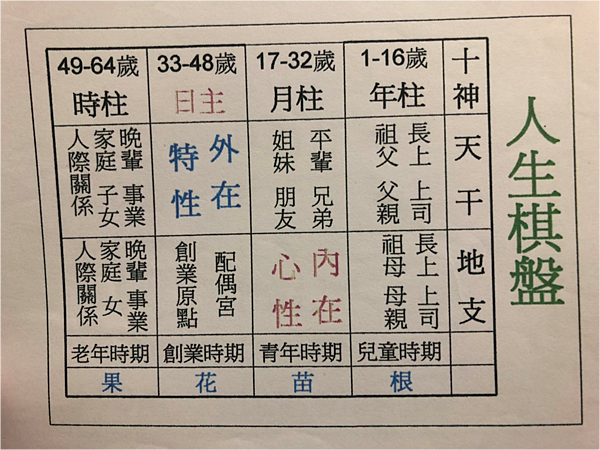 人生棋盤
十神
1-16歲
年柱
17-32歲
月柱
33-48歲
日主
49-64歲
時柱
天干
長上 上司
祖父 父親
平輩 兄弟
姐妹 朋友
外在
特性
晚輩 事業
家庭 子女
人際關係
地支
長上 上司
祖母 母親
內在
心性
配偶宮
創業原點
晚輩 事業
家庭 女
人際關係
兒童時期
青年時期
創業時期
老年時期
根
苗
花
果